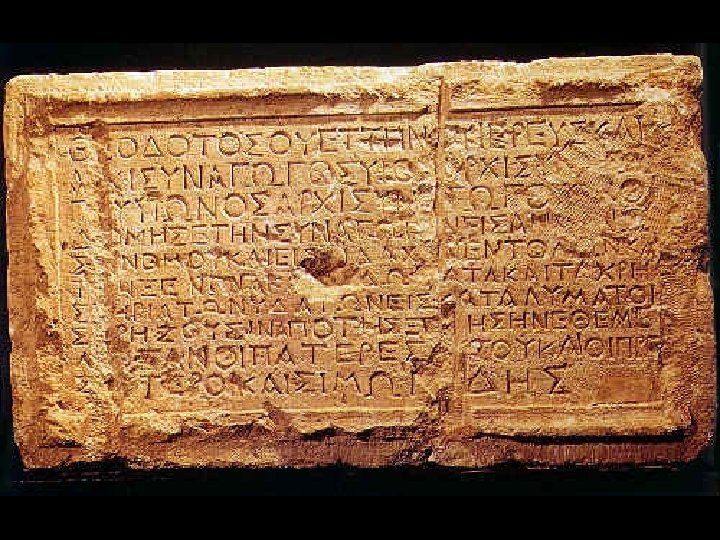 ΘΕΟΔΟΤΟΣ ΟΥΕΤΤΗΝΟΥ ΙΕΡΕΥΣ ΚΑΙ
ΑΡΧΙΣΥΝΑΓΩΓΟΣ ΥΙΟΣ ΑΡΧΙΣ
ΥΙΩΝΟΣ ΑΡΧΙΣΥΝ ΓΩΓΟ
ΔΟΜΗΣΕ ΤΗΝ ΣΥΝΑΓΩΓ Ν ΕΙΣ ΑΝ
ΝΟΜΟΥ ΚΑΙ ΕΙΣ ΔΙΔΑΧΗΝ ΕΝΤΟΛΩΝ
ΞΕΝΩΝΑ ΔΩΜΑΤΑ ΚΑΙ ΤΑ ΧΡΗ
ΗΡΙΑ ΤΩΝ ΥΔΑΤΩΝ ΕΙΣ ΚΑΤΑΛΥΜΑ ΤΟΙ
ΡΗΖΟΥΣΙΝ ΑΠΟ ΤΗΣ ΞΕ ΗΣ ΗΝ ΕΘΕΜΕ
ΣΑΝ ΟΙ ΠΑΤΕΡΕΣ ΤΟΥ ΚΑΙ ΟΙ ΠΡΕ
ΥΤΕΡΟΙ ΚΑΙ ΣΙΜΩΝ ΔΗΣ